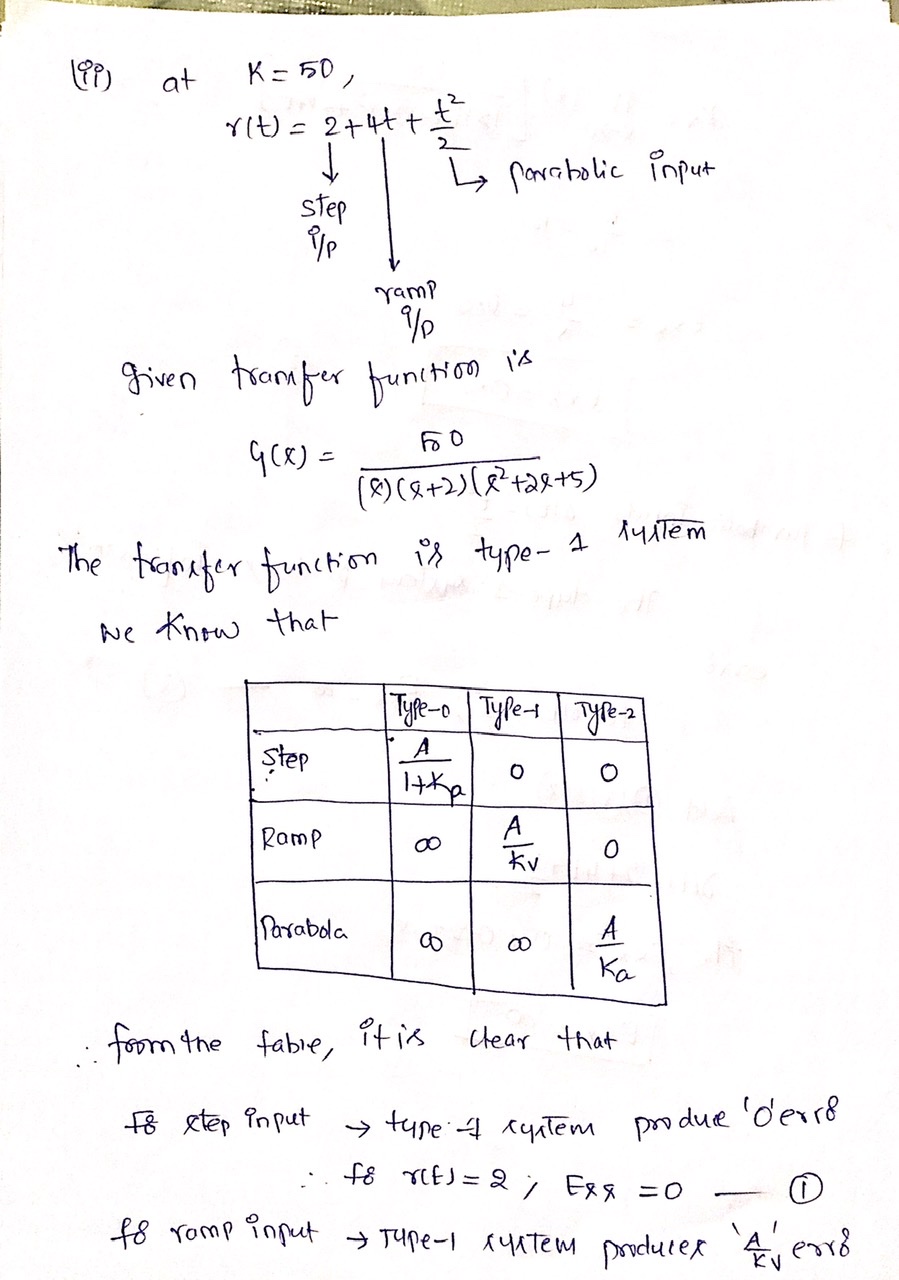 (ii) at K = 50,
r(t) = 2 + 4t + t²/2
↳ parabolic input
step
i/p
ramp
i/p
given transfer function is
G(s) = 50 / (s)(s+2)(s²+2s+5)
The transfer function is type-1 system
we know that
Type-0 Type-1 Type-2
Step A/1+Kp 0 0
Ramp ∞ A/Kv 0
Parabola ∞ ∞ A/Ka
∴ from the table, it is clear that
for step input → type-1 system produce '0' error
∴ for r(t) = 2 ; Ess = 0 — ①
for ramp input → Type-1 system produces 'A/Kv' error